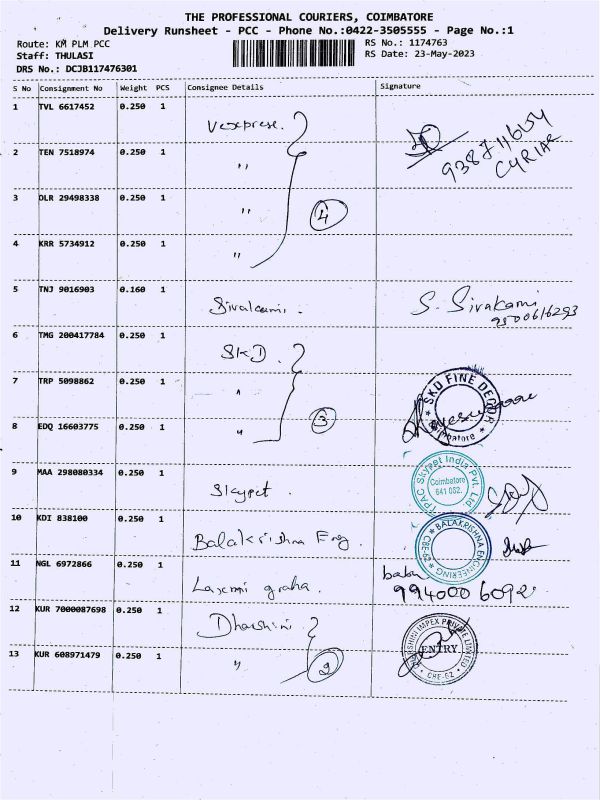 THE PROFESSIONAL COURIERS, COIMBATORE
Delivery Runsheet - PCC - Phone No.:0422-3505555 - Page No.:1
Route: KM PLM PCC
Staff: THULASI
DRS No.: DCJB117476301
RS No.: 1174763
RS Date: 23-May-2023
S No Consignment No Weight PCS Consignee Details Signature
1 TVL 6617452 0.250 1
2 TEN 7518974 0.250 1 "
CYRIAC
3 DLR 29498338 0.250 1 " 4
4 KRR 5734912 0.250 1 "
5 TNJ 9016903 0.160 1 Sivakami. S. Sivakami
9500616293
6 TMG 200417784 0.250 1 SKD.
7 TRP 5098862 0.250 1 " SKD FINE DECOR
8 EDQ 16603775 0.250 1 " 3
9 MAA 298080334 0.250 1 Skypet. TPAC Skypet India Pvt. Ltd.
Coimbatore
641 062.
10 KDI 838100 0.250 1 Balakrishna Eng. BALAKRISHNA ENGINEERING
CBE-62
11 NGL 6972866 0.250 1 Laxmi graha. babu
994000 6092
12 KUR 7000087698 0.250 1 Dharshini DHARSHINI IMPEX PRIVATE LIMITED
ENTRY
CBE-62
13 KUR 608971479 0.250 1 " 2